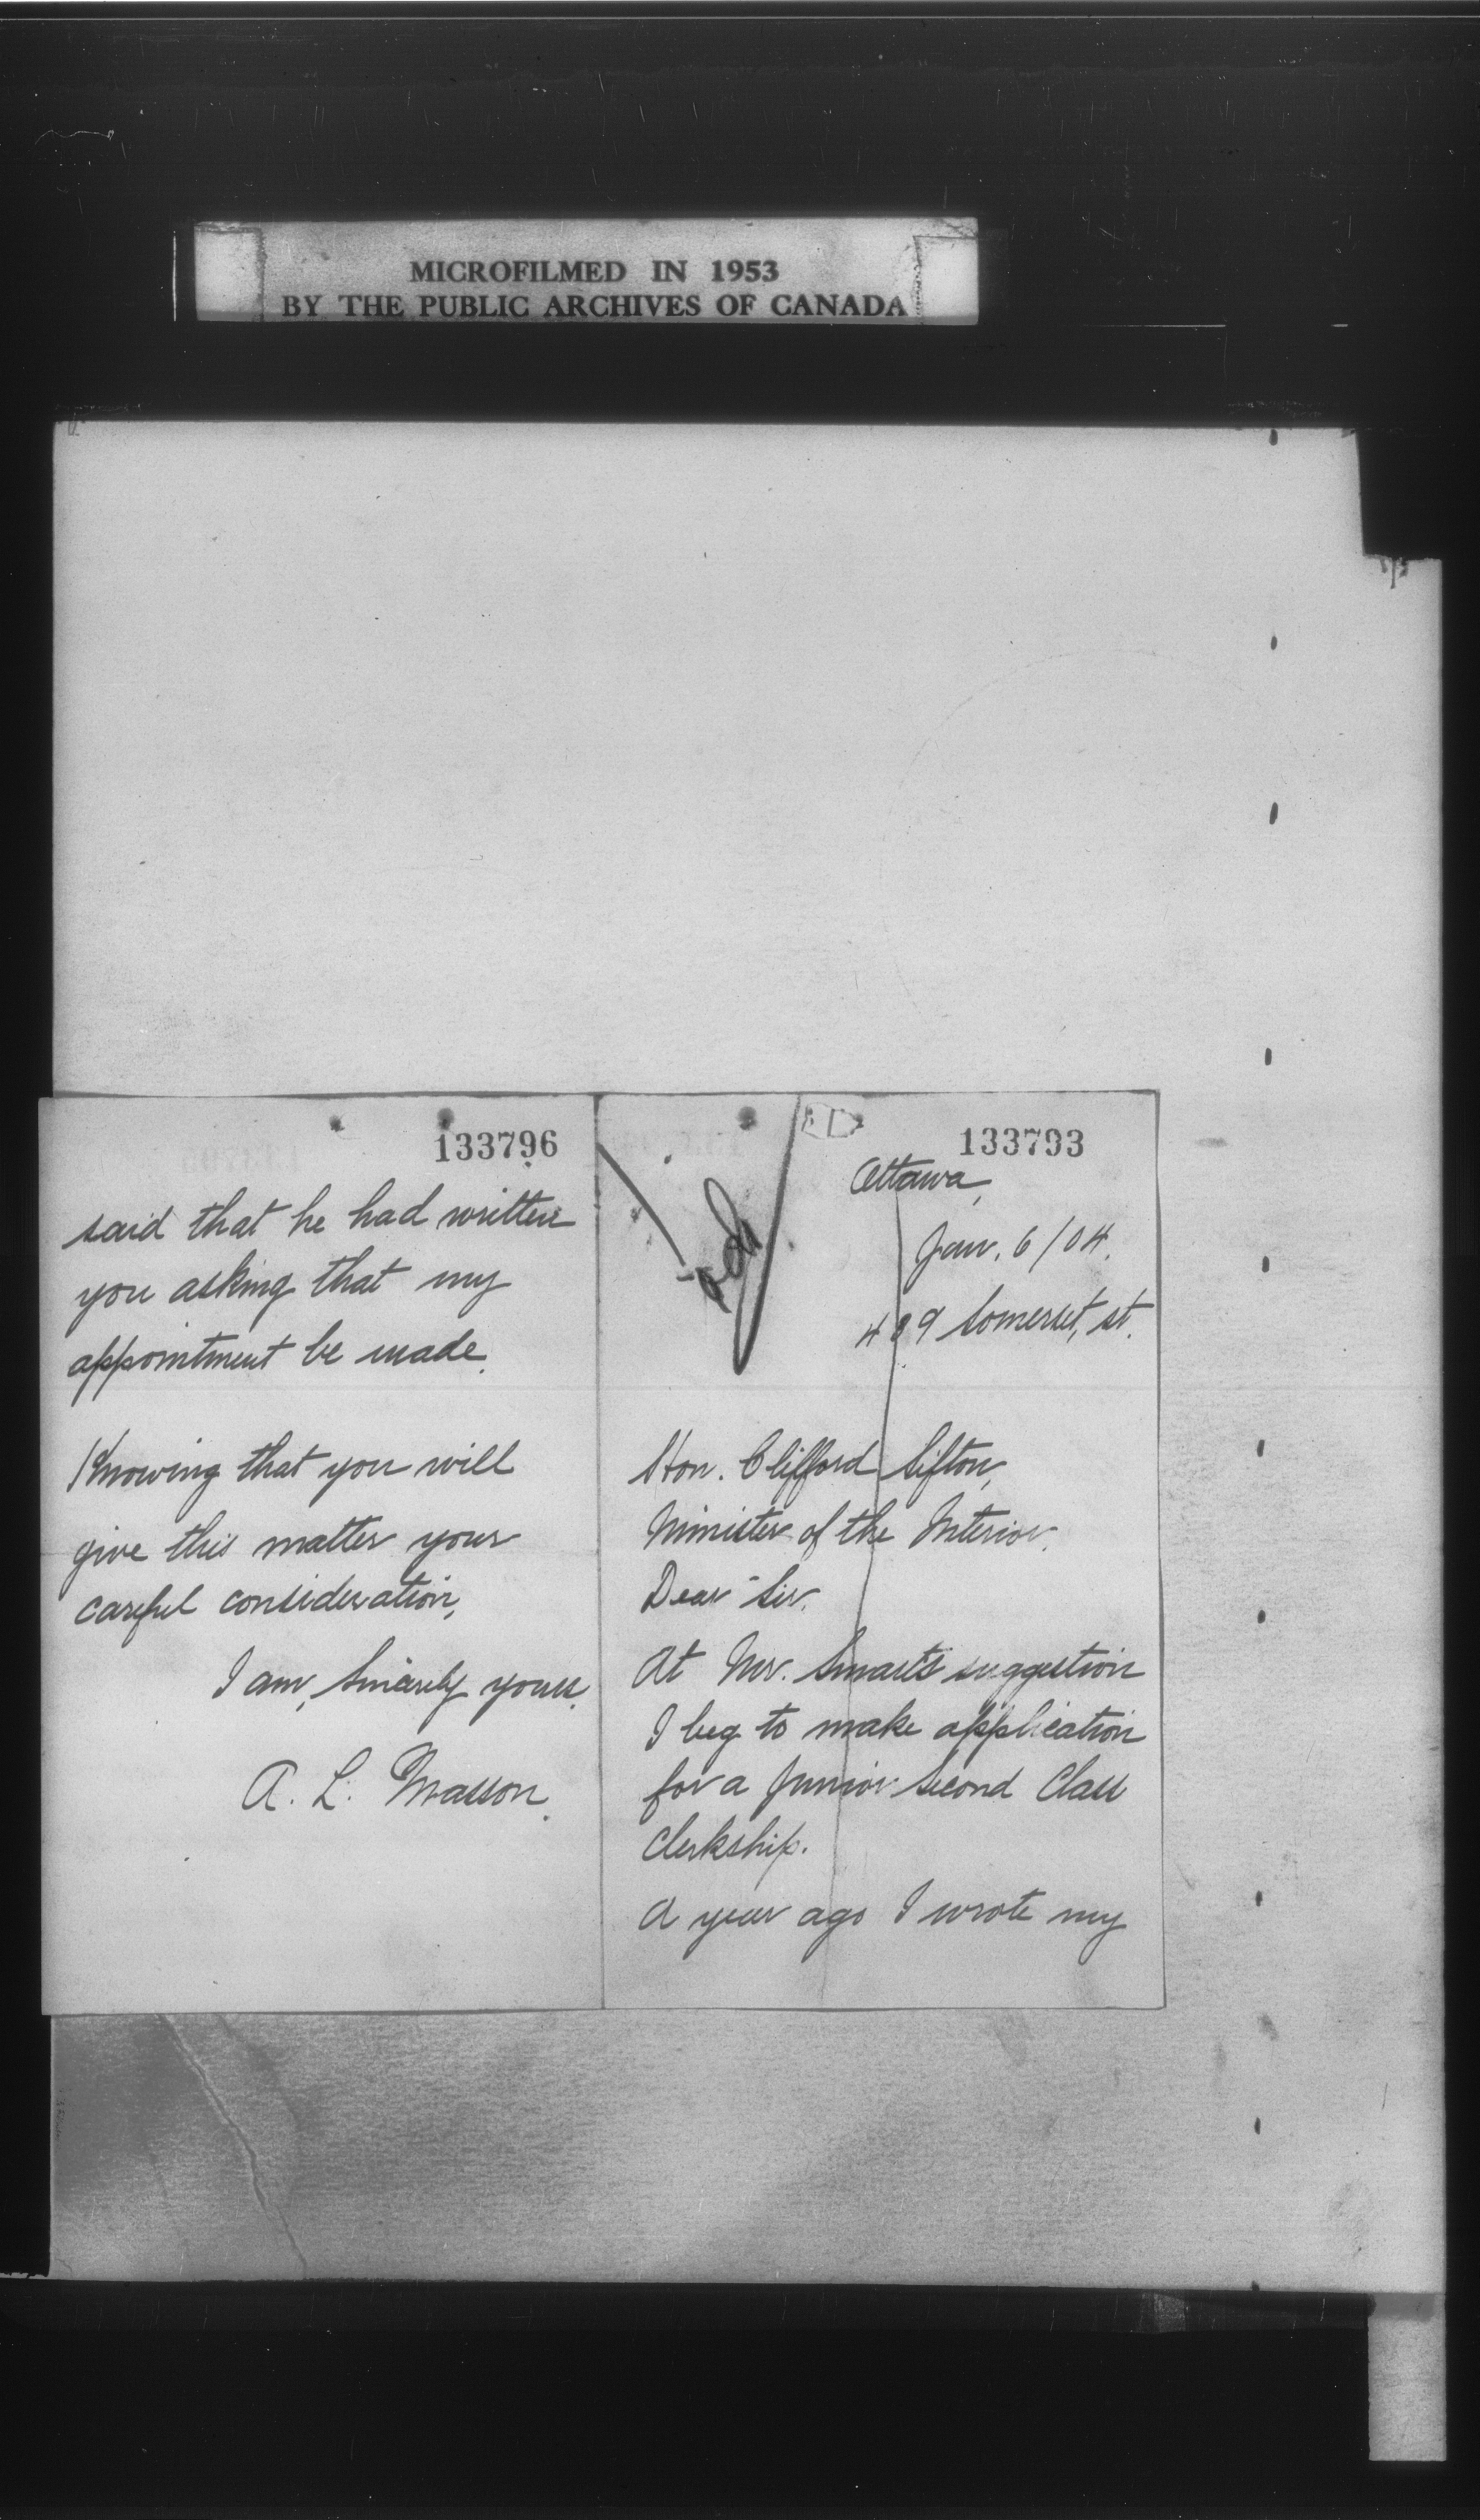 MICROFILMED IN 1953
BY THE PUBLIC ARCHIVES OF CANADA
133796
said that he had written
you asking that my
appointment be made.
Knowing that you will
give this matter your
careful consideration,
I am, Sincerely yours.
A. L. Masson.
133793
Ottawa,
Jan. 6/04.
489 Somerset, st.
Hon. Clifford Sifton,
Minister of the Interior.
Dear Sir.
At Mr. Smart's suggestion
I beg to make application
for a Junior Second Class
Clerkship.
A year ago I wrote my